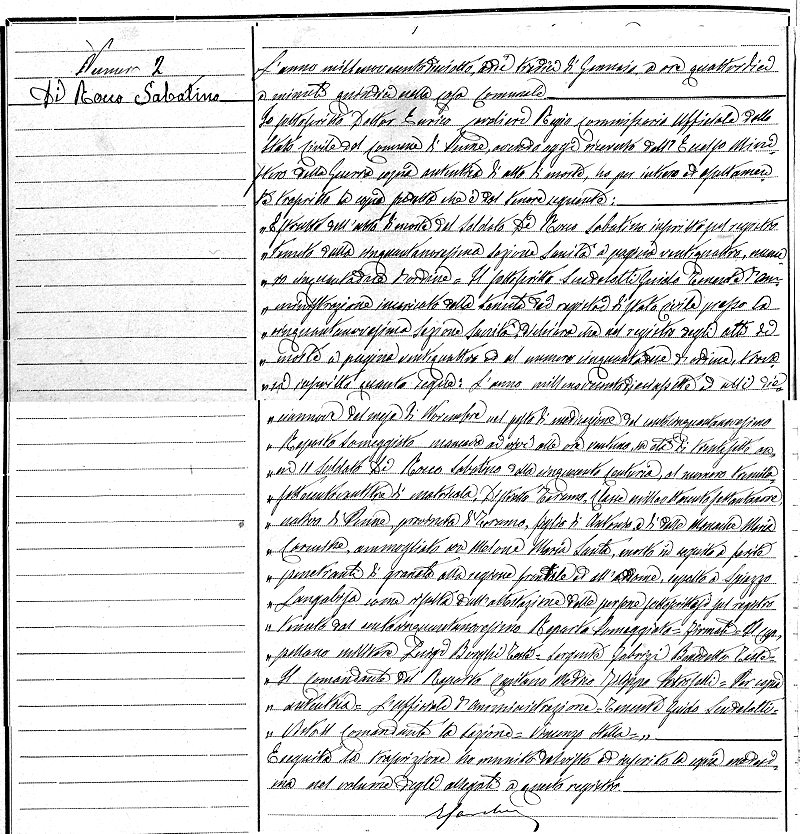 Numero 2
Di Rocco Sabatino
L'anno millenovecentodiciotto, addì tredici di Gennaio, a ore quattordici
e minuti quindici nella Casa Comunale
Io sottoscritto Dottor Enrico Cavaliere Regio Commissario Ufficiale dello
Stato Civile del Comune di Penne, avendo oggi ricevuto dall'Eccelso Mini=
stero della Guerra copia autentica di atto di morte, ho per intero ed esattamen=
te trascritto la copia predetta che è del tenore seguente:
„ Estratto dell'atto di morte del Soldato Di Rocco Sabatino inscritto sul registro
„ tenuto dalla cinquantanovesima Sezione Sanità a pagina ventiquattro, nume=
„ ro cinquantadue d'ordine = Il sottoscritto Guido Tenente d'am=
„ ministrazione incaricato della tenuta dei registri di stato civile presso la
„ cinquantanovesima Sezione Sanità dichiara che nel registro degli atti di
„ morte a pagina ventiquattro ed al numero cinquantadue d'ordine, trova=
„ si inscritto quanto segue: L'anno millenovecentodiciassette ed alli dici=
„ iannove del mese di Novembre nel posto di medicazione del centocinquantanovesimo
„ Reparto Someggiato mancava ai vivi alle ore ventuno, in età di trentotto an=
„ ni il Soldato Di Rocco Sabatino della cinquecento centuria, al numero
„ di matricola, Distretto Teramo, Classe milleottocentosettantanove
„ nativo di Penne, provincia di Teramo, figlio di Antonio e di delle Monache Maria
„ ammogliato con Melone Maria Santa, morto in seguito a ferita
„ penetrante di granata alla regione frontale ed all'addome, sepolto a Spiazzo
„ Langabisa come risulta dall'attestazione delle persone sottoscritte sul registro
„ tenuto dal centocinquantanovesimo Reparto Someggiato = Firmati = Il Cap=
„ pellano militare Luigi Borghi Teste = Sergente Fabrizi Teste =
„ Il Comandante del Reparto Capitano Medico Filippo = Per copia
„ autentica = L'ufficiale d'Amministrazione = Tenente Guido
„ Visto Il Comandante la Sezione = Vincenzo Stella = „
Eseguita la trascrizione ho munito del visto ed inserito la copia medesi=
ma nel volume degli allegati a questo registro.